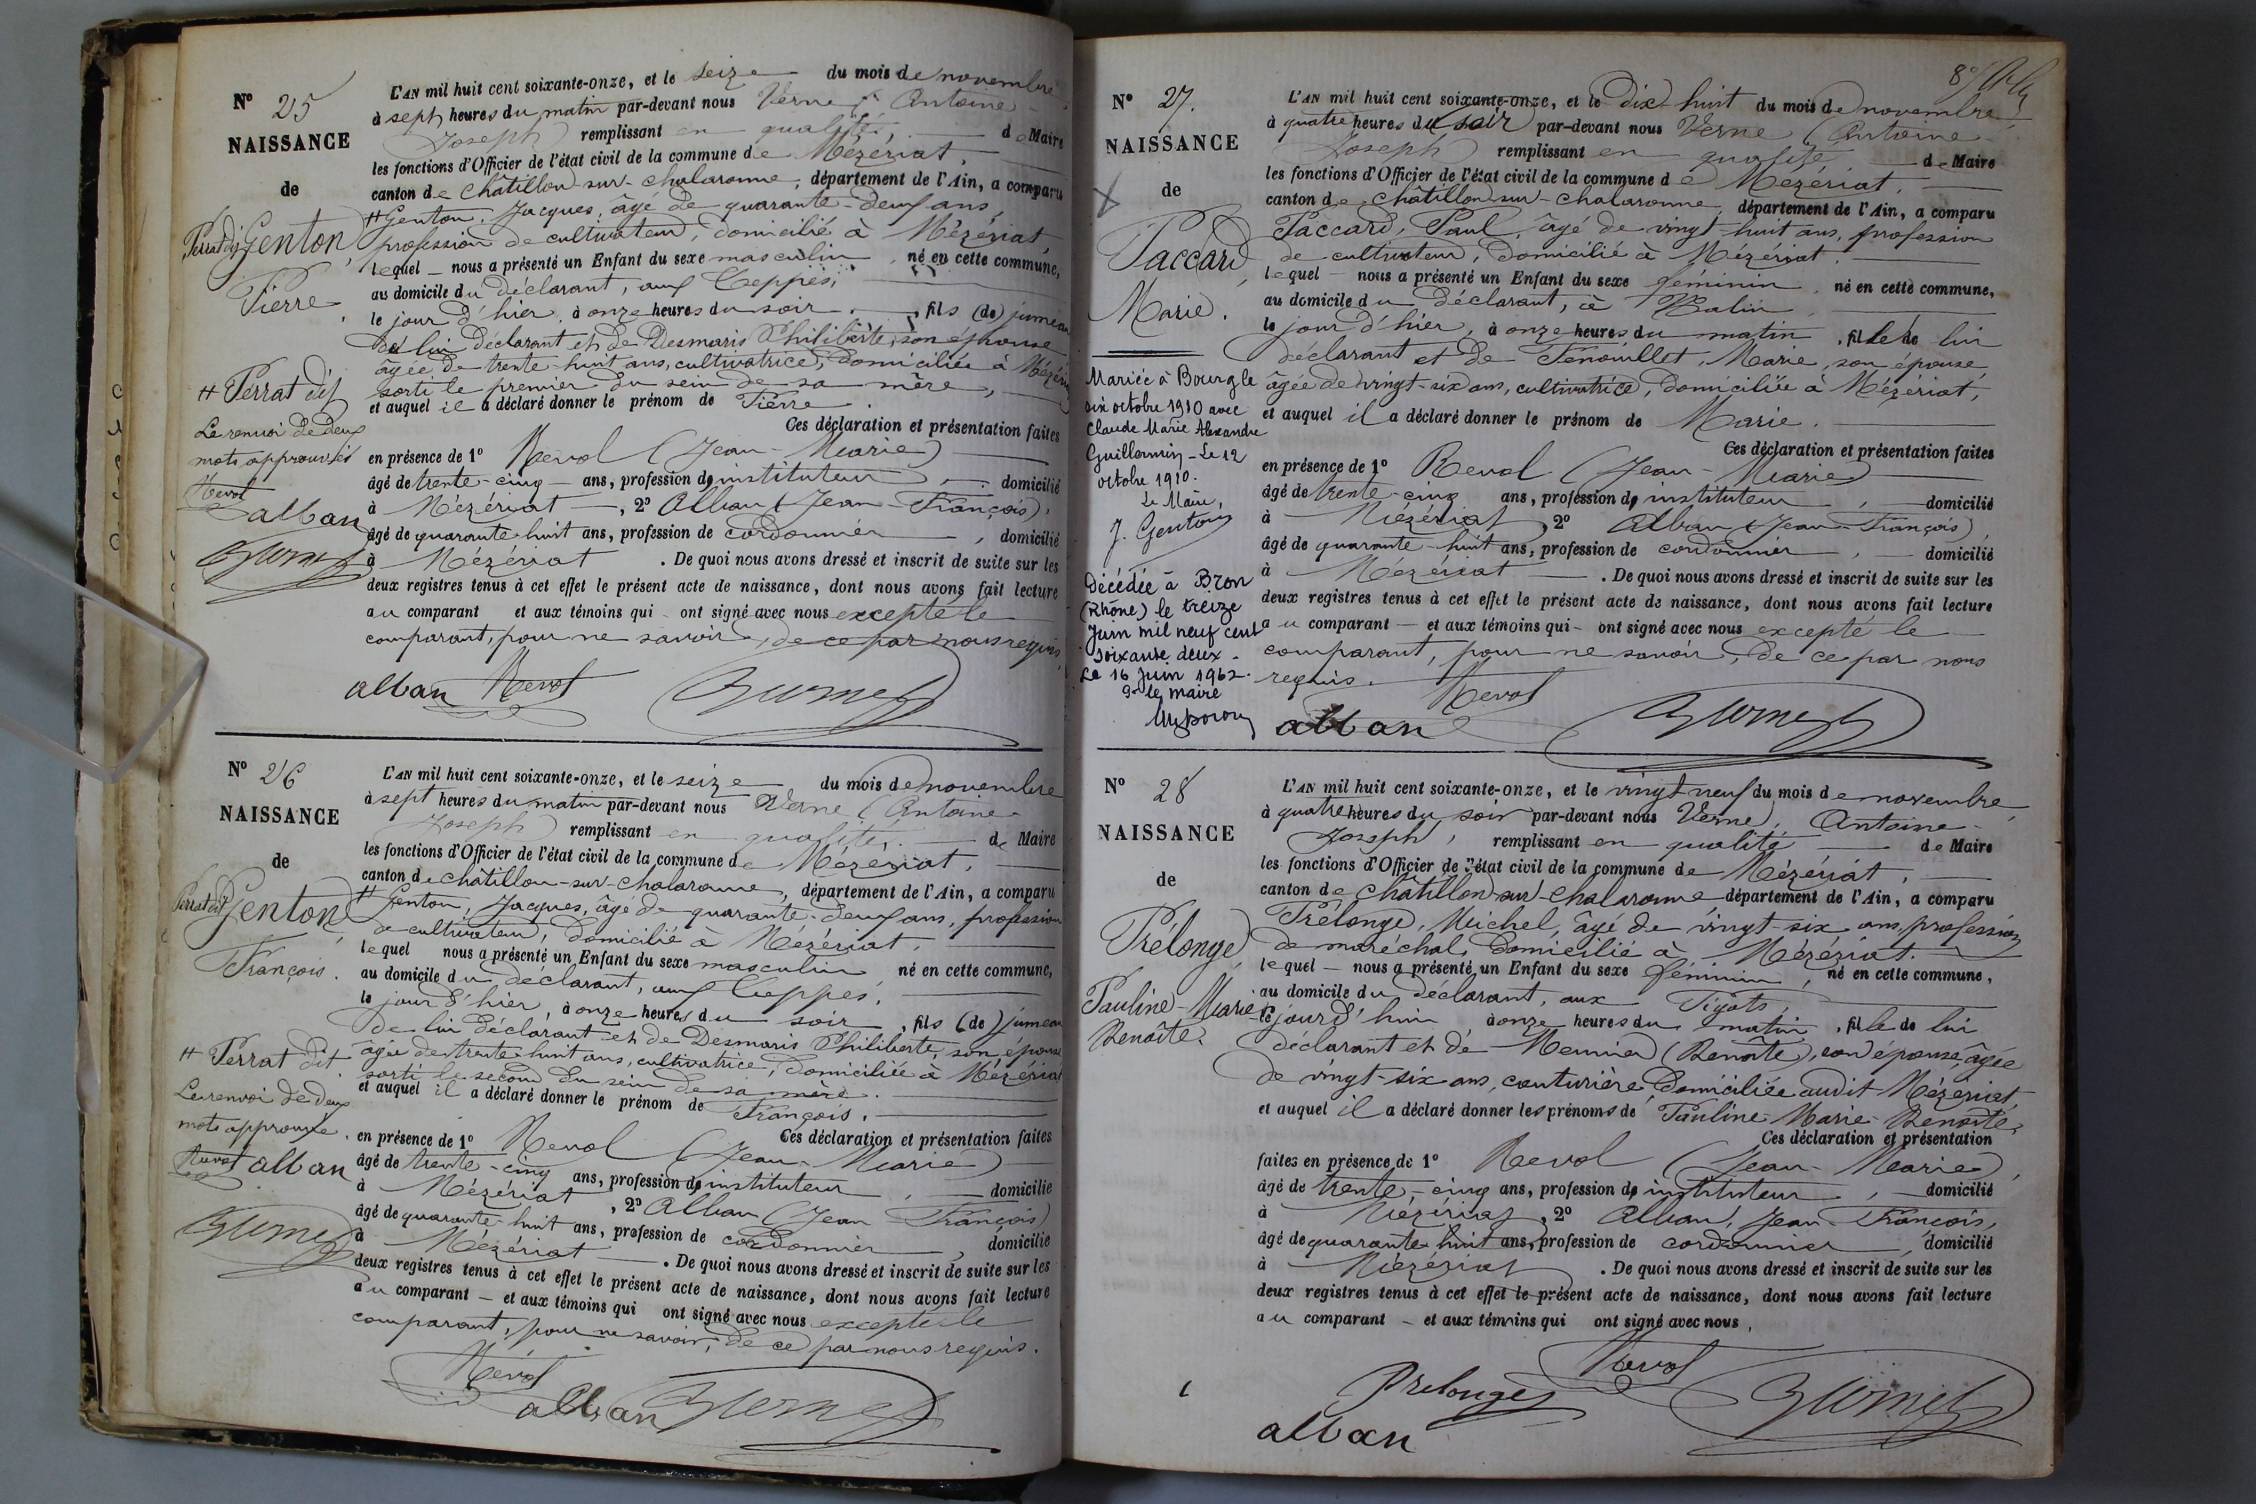 N° 25
NAISSANCE
de
Perrat dit Genton,
Pierre.
# Perrat dit
Le renvoi de deux
mots approuvés
Revol
alban
L'AN mil huit cent soixante-onze, et le seize du mois de novembre
à sept heures du matin par-devant nous Verne (Antoine-
Joseph) remplissant en qualité, de Maire
les fonctions d'Officier de l'état civil de la commune de Mézériat,
canton de Châtillon-sur-Chalaronne, département de l'Ain, a comparu
# Genton, Jacques, âgé de quarante-deux ans,
profession de cultivateur, domicilié à Mézériat,
lequel nous a présenté un Enfant du sexe masculin, né en cette commune,
au domicile du déclarant, aux Ceppes,
le jour d'hier, à onze heures du soir, fils (de) jumeau
de lui déclarant et de Desmaris Philiberte, son épouse
âgée de trente-huit ans, cultivatrice, domiciliée à Mézériat
sorti le premier du sein de sa mère,
et auquel il a déclaré donner le prénom de Pierre.
Ces déclaration et présentation faites
en présence de 1° Revol (Jean-Marie)
âgé de trente-cinq ans, profession de instituteur, domicilié
à Mézériat, 2° Alban (Jean-François),
âgé de quarante huit ans, profession de cordonnier, domicilié
à Mézériat. De quoi nous avons dressé et inscrit de suite sur les
deux registres tenus à cet effet le présent acte de naissance, dont nous avons fait lecture
au comparant et aux témoins qui ont signé avec nous excepté le
comparant, pour ne savoir, de ce par nous requis,
alban Revol
N° 26
NAISSANCE
de
Perrat dit Genton,
François.
# Perrat dit
Le renvoi de deux
mots approuvé.
Revol alban
L'AN mil huit cent soixante-onze, et le seize du mois de novembre
à sept heures du matin par-devant nous Verne (Antoine-
Joseph) remplissant en qualité, de Maire
les fonctions d'Officier de l'état civil de la commune de Mézériat,
canton de Châtillon-sur-Chalaronne, département de l'Ain, a comparu
# Genton, Jacques, âgé de quarante-deux ans, profession
de cultivateur, domicilié à Mézériat,
lequel nous a présenté un Enfant du sexe masculin né en cette commune,
au domicile du déclarant, aux Ceppes,
le jour d'hier, à onze heures du soir, fils (de) jumeau
de lui déclarant et de Desmaris Philiberte, son épouse
âgée de trente-huit ans, cultivatrice, domiciliée à Mézériat
sorti le second du sein de sa mère.
et auquel il a déclaré donner le prénom de François.
Ces déclaration et présentation faites
en présence de 1° Revol (Jean-Marie)
âgé de trente-cinq ans, profession de instituteur, domicilié
à Mézériat, 2° Alban (Jean-François)
âgé de quarante-huit ans, profession de cordonnier, domicilié
à Mézériat. De quoi nous avons dressé et inscrit de suite sur les
deux registres tenus à cet effet le présent acte de naissance, dont nous avons fait lecture
au comparant et aux témoins qui ont signé avec nous excepté le
comparant, pour ne savoir, de ce par nous requis.
Revol
alban
8°
N° 27.
NAISSANCE
de
Paccard,
Marie.
Mariée à Bourg le
six octobre 1910 avec
Claude Marie Alexandre
Guillermin - Le 12
octobre 1910.
Le Maire,
J. Genton
Décédée à Bron
(Rhône) le treize
Juin mil neuf cent
soixante deux -
Le 16 Juin 1962.
Pr le maire
L'AN mil huit cent soixante-onze, et le dix-huit du mois de novembre,
à quatre heures du (soir) par-devant nous Verne (Antoine-
Joseph) remplissant en qualité, de Maire
les fonctions d'Officier de l'état civil de la commune de Mézériat,
canton de Châtillon-sur-Chalaronne, département de l'Ain, a comparu
Paccard, Paul, âgé de vingt-huit ans, profession
de cultivateur, domicilié à Mézériat.
lequel nous a présenté un Enfant du sexe féminin, né en cette commune,
au domicile du déclarant, à
le jour d'hier, à onze heures du matin, fille de lui
déclarant et de Fenouillet, Marie, son épouse,
âgée de vingt-six ans, cultivatrice, domiciliée à Mézériat,
et auquel il a déclaré donner le prénom de Marie.
Ces déclaration et présentation faites
en présence de 1° Revol (Jean-Marie)
âgé de trente-cinq ans, profession de instituteur, domicilié
à Mézériat, 2° Alban (Jean-François)
âgé de quarante-huit ans, profession de cordonnier, domicilié
à Mézériat. De quoi nous avons dressé et inscrit de suite sur les
deux registres tenus à cet effet le présent acte de naissance, dont nous avons fait lecture
au comparant et aux témoins qui ont signé avec nous excepté le
comparant, pour ne savoir, de ce par nous
requis.
Revol
alban
N° 28
NAISSANCE
de
Prélonge,
Pauline-Marie
Benoîte.
L'AN mil huit cent soixante-onze, et le vingt neuf du mois de novembre,
à quatre heures du soir par-devant nous Verne, Antoine-
Joseph, remplissant en qualité de Maire
les fonctions d'Officier de l'état civil de la commune de Mézériat,
canton de Châtillon-sur-Chalaronne, département de l'Ain, a comparu
Prélonge, Michel, âgé de vingt-six ans, profession
de maréchal, domicilié à Mézériat.
lequel nous a présenté un Enfant du sexe féminin, né en cette commune,
au domicile du déclarant, aux Tigots,
le jour d'hui à onze heures du matin, fille de lui
déclarant et de Meunier (Benoîte), son épouse, âgée
de vingt-six ans, couturière, domiciliée audit Mézériat,
et auquel il a déclaré donner les prénoms de Pauline-Marie-Benoîte.
Ces déclaration et présentation
faites en présence de 1° Revol (Jean-Marie),
âgé de trente-cinq ans, profession de instituteur, domicilié
à Mézériat, 2° Alban, Jean-François,
âgé de quarante huit ans, profession de cordonnier, domicilié
à Mézériat. De quoi nous avons dressé et inscrit de suite sur les
deux registres tenus à cet effet le présent acte de naissance, dont nous avons fait lecture
au comparant et aux témoins qui ont signé avec nous,
Revol
Prelonge
alban